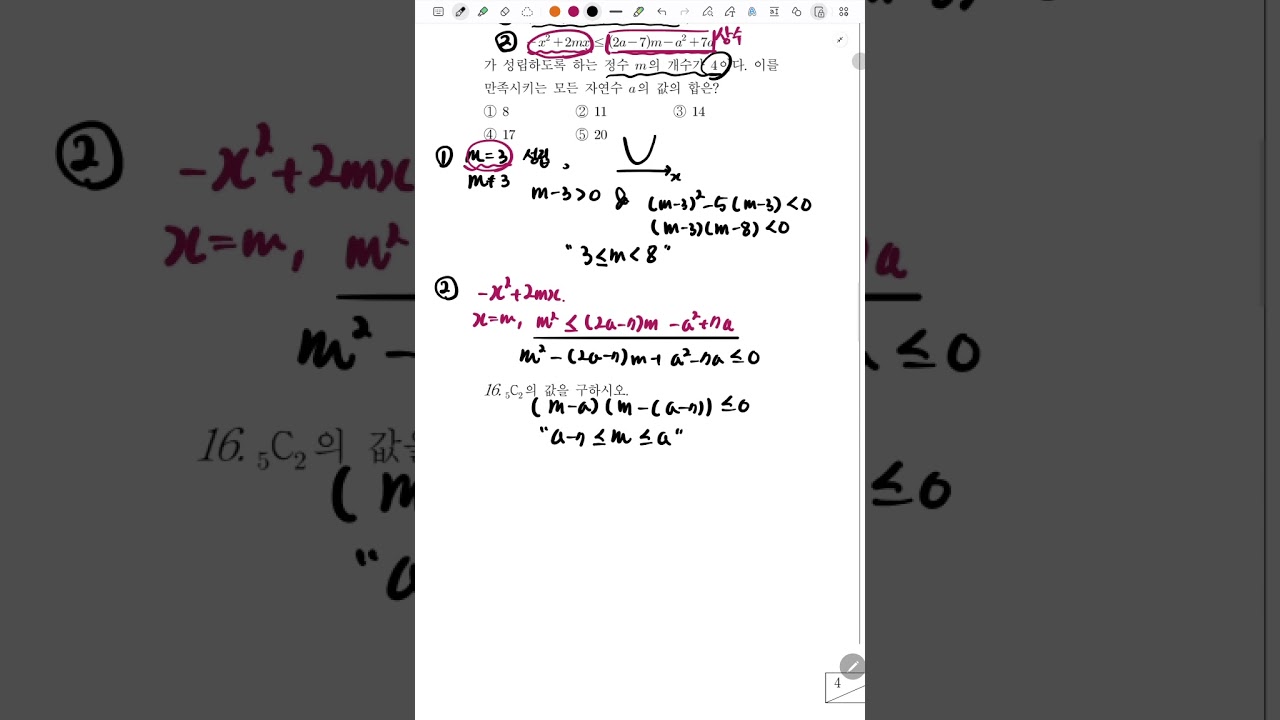 ② -x²+2mx≤(2a-7)m-a²+7a 상수
가 성립하도록 하는 정수 m의 개수가 4이다. 이를
만족시키는 모든 자연수 a의 값의 합은?
① 8 ② 11 ③ 14
④ 17 ⑤ 20
① m=3 성립,
m≠3
x
m-3>0 & (m-3)²-5(m-3)<0
(m-3)(m-8)<0
"3≤m<8"
② -x²+2mx.
x=m, m²≤(2a-7)m-a²+7a
m²-(2a-7)m+a²-7a≤0
16. ₅C₂의 값을 구하시오.
(m-a)(m-(a-7))≤0
"a-7≤m≤a"
4
② -x²+2mx
x=m, m² a
m²- ≤0
16. ₅C₂의 값을
(m ≤0
"a